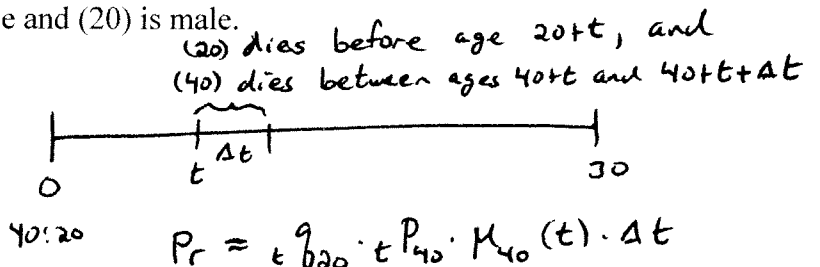 e and (20) is male.
(20) dies before age 20+t, and
(40) dies between ages 40+t and 40+t+Δt
t Δt
0 30
40:20 Pr ≈ ₜq₂₀ · ₜP₄₀ · μ₄₀(t) · Δt